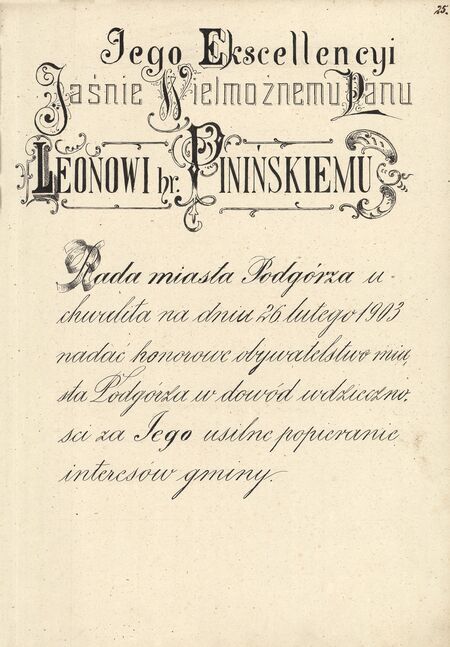 25.
Jego Ekscellencyi
Jaśnie Wielmożnemu Panu
LEONOWI hr. PINIŃSKIEMU
Rada miasta Podgórza u-
chwaliła na dniu 26 lutego 1903
nadać honorowe obywatelstwo mia-
sta Podgórza w dowód wdzięczno-
ści za Jego usilne popieranie
interesów gminy.